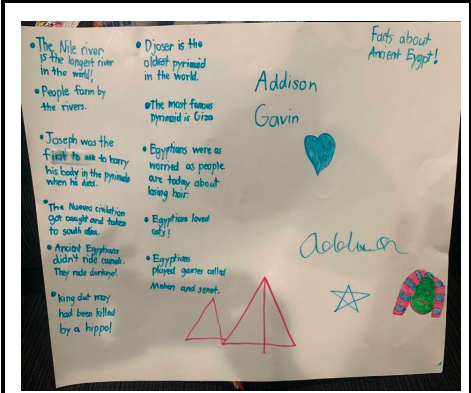 • The Nile river
is the longest river
in the world!
• People farm by
the rivers.
• Joseph was the
first to ask to barry
his body in the pyrimids
when he died.
• The Nueva civilation
got caught and taken
to south
• Ancient Egyptians
didn't ride camels.
They rode donkeys!
• King dut
had been killed
by a hippo!
• Djoser is the
oldest pyrimid
in the world.
• The most famous
pyrimaid is Giza
• Egyptians were as
worried as people
are today about
losing hair.
• Egyptians loved
cats!
• Egyptians
played games called
Mehen and senet.
Facts about
Ancient Eygpt!
Addison
Gavin
Addison